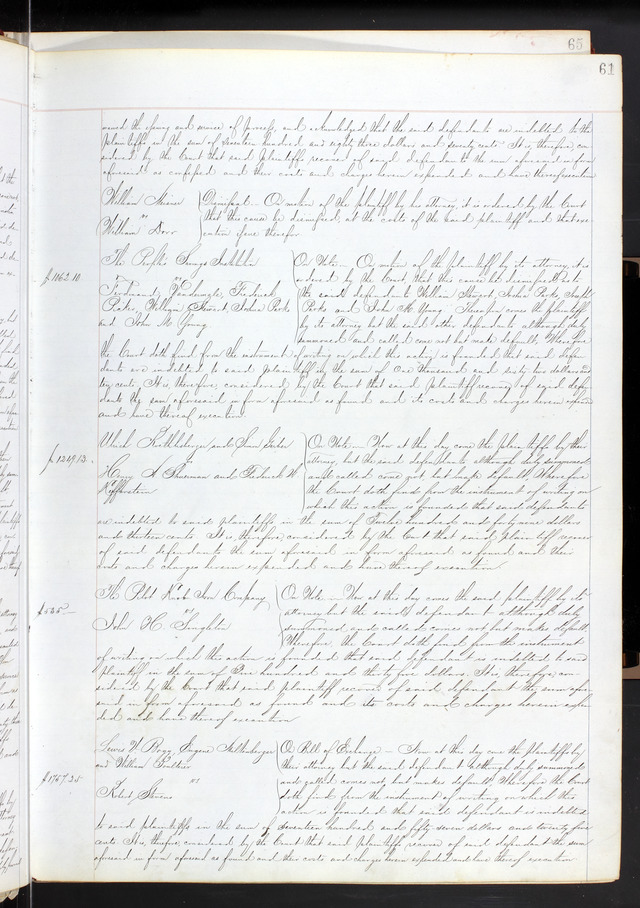 65
61
waved the issuing and service of process, and acknowledged that the said defendants are indebted to the
plaintiffs in the sum of Seventeen hundred and eighty three dollars and seventy cents It is, therefore, con
sidered by the Court that said Plaintiffs recover of said defendants the sum aforesaid in form
aforesaid as confessed and their costs and charges herein expended and have thereof execution
William
vs
William Dorr
Dismissal — On motion of the plaintiff by his attorney, it is ordered by the Court
that this cause be dismissed, at the costs of the said plaintiff and that exe-
cution issue therefor
$1062.10
The Peoples Savings Institution
vs
Ferdinand Vandewagle, Frederick
William Stewart, Parks
and John M Young
On Note — On motion of the plaintiff by its attorney, it is
ordered by the Court, that this cause be dismissed as to
the said defendants William Stewart, Parks, Joseph
Parks and John M Young. Now comes the plaintiff
by its attorney but the said other defendants although duly
summoned and called come not but make default. Wherefore
the Court doth find from the instrument of writing on which this action is founded that said defen-
dants are indebted to said plaintiff in the sum of One thousand and sixty two dollars and
ten cents. It is, therefore, considered by the Court that said plaintiff recover of said defen-
dants the sum aforesaid in form aforesaid as found and its costs and charges herein expended
and have thereof execution
$1249.13.
Ulrich and
vs
Henry A Thurman and Frederick W
On Note — Now at this day come the plaintiffs by their
attorney, but the said defendants although duly summoned
and called come not but make default, Wherefore
the Court doth find from the instrument of writing on
which this action is founded that said defendants
are indebted to said plaintiffs in the sum of Twelve hundred and forty nine dollars
and thirteen cents It is, therefore, considered by the Court that said plaintiffs recover
of said defendants the sum aforesaid in form aforesaid as found and their
costs and charges herein expended and have thereof execution
$535—
The Pilot Knob Iron Company
vs
John H. Singleton
On Note — Now at this day comes the said plaintiff by its
attorney but the said defendant although duly
summoned and called comes not but makes default
Wherefore, the Court doth find from the instrument
of writing on which this action is founded that said defendant is indebted to said
plaintiff in the sum of Five hundred and thirty five dollars. It is, therefore, con
sidered by the Court that said plaintiff recover of said defendant the sum afore
said in form aforesaid as found and its costs and charges herein expen
ded and have thereof execution
$1757.25
Lewis W. Eugene
and William
vs
Robert
On Bill of Exchange — Now at this day come the plaintiffs by
their attorney but the said defendant although duly summoned
and called comes not, but makes default. Wherefore the Court
doth find from the instrument of writing on which this
action is founded that said defendant is indebted
to said plaintiffs in the sum of seventeen hundred and fifty seven dollars and twenty five
cents It is, therefore, considered by the Court that said plaintiffs recover of said defendant the sum
aforesaid in form aforesaid as found and their costs and charges herein expended and have thereof execution